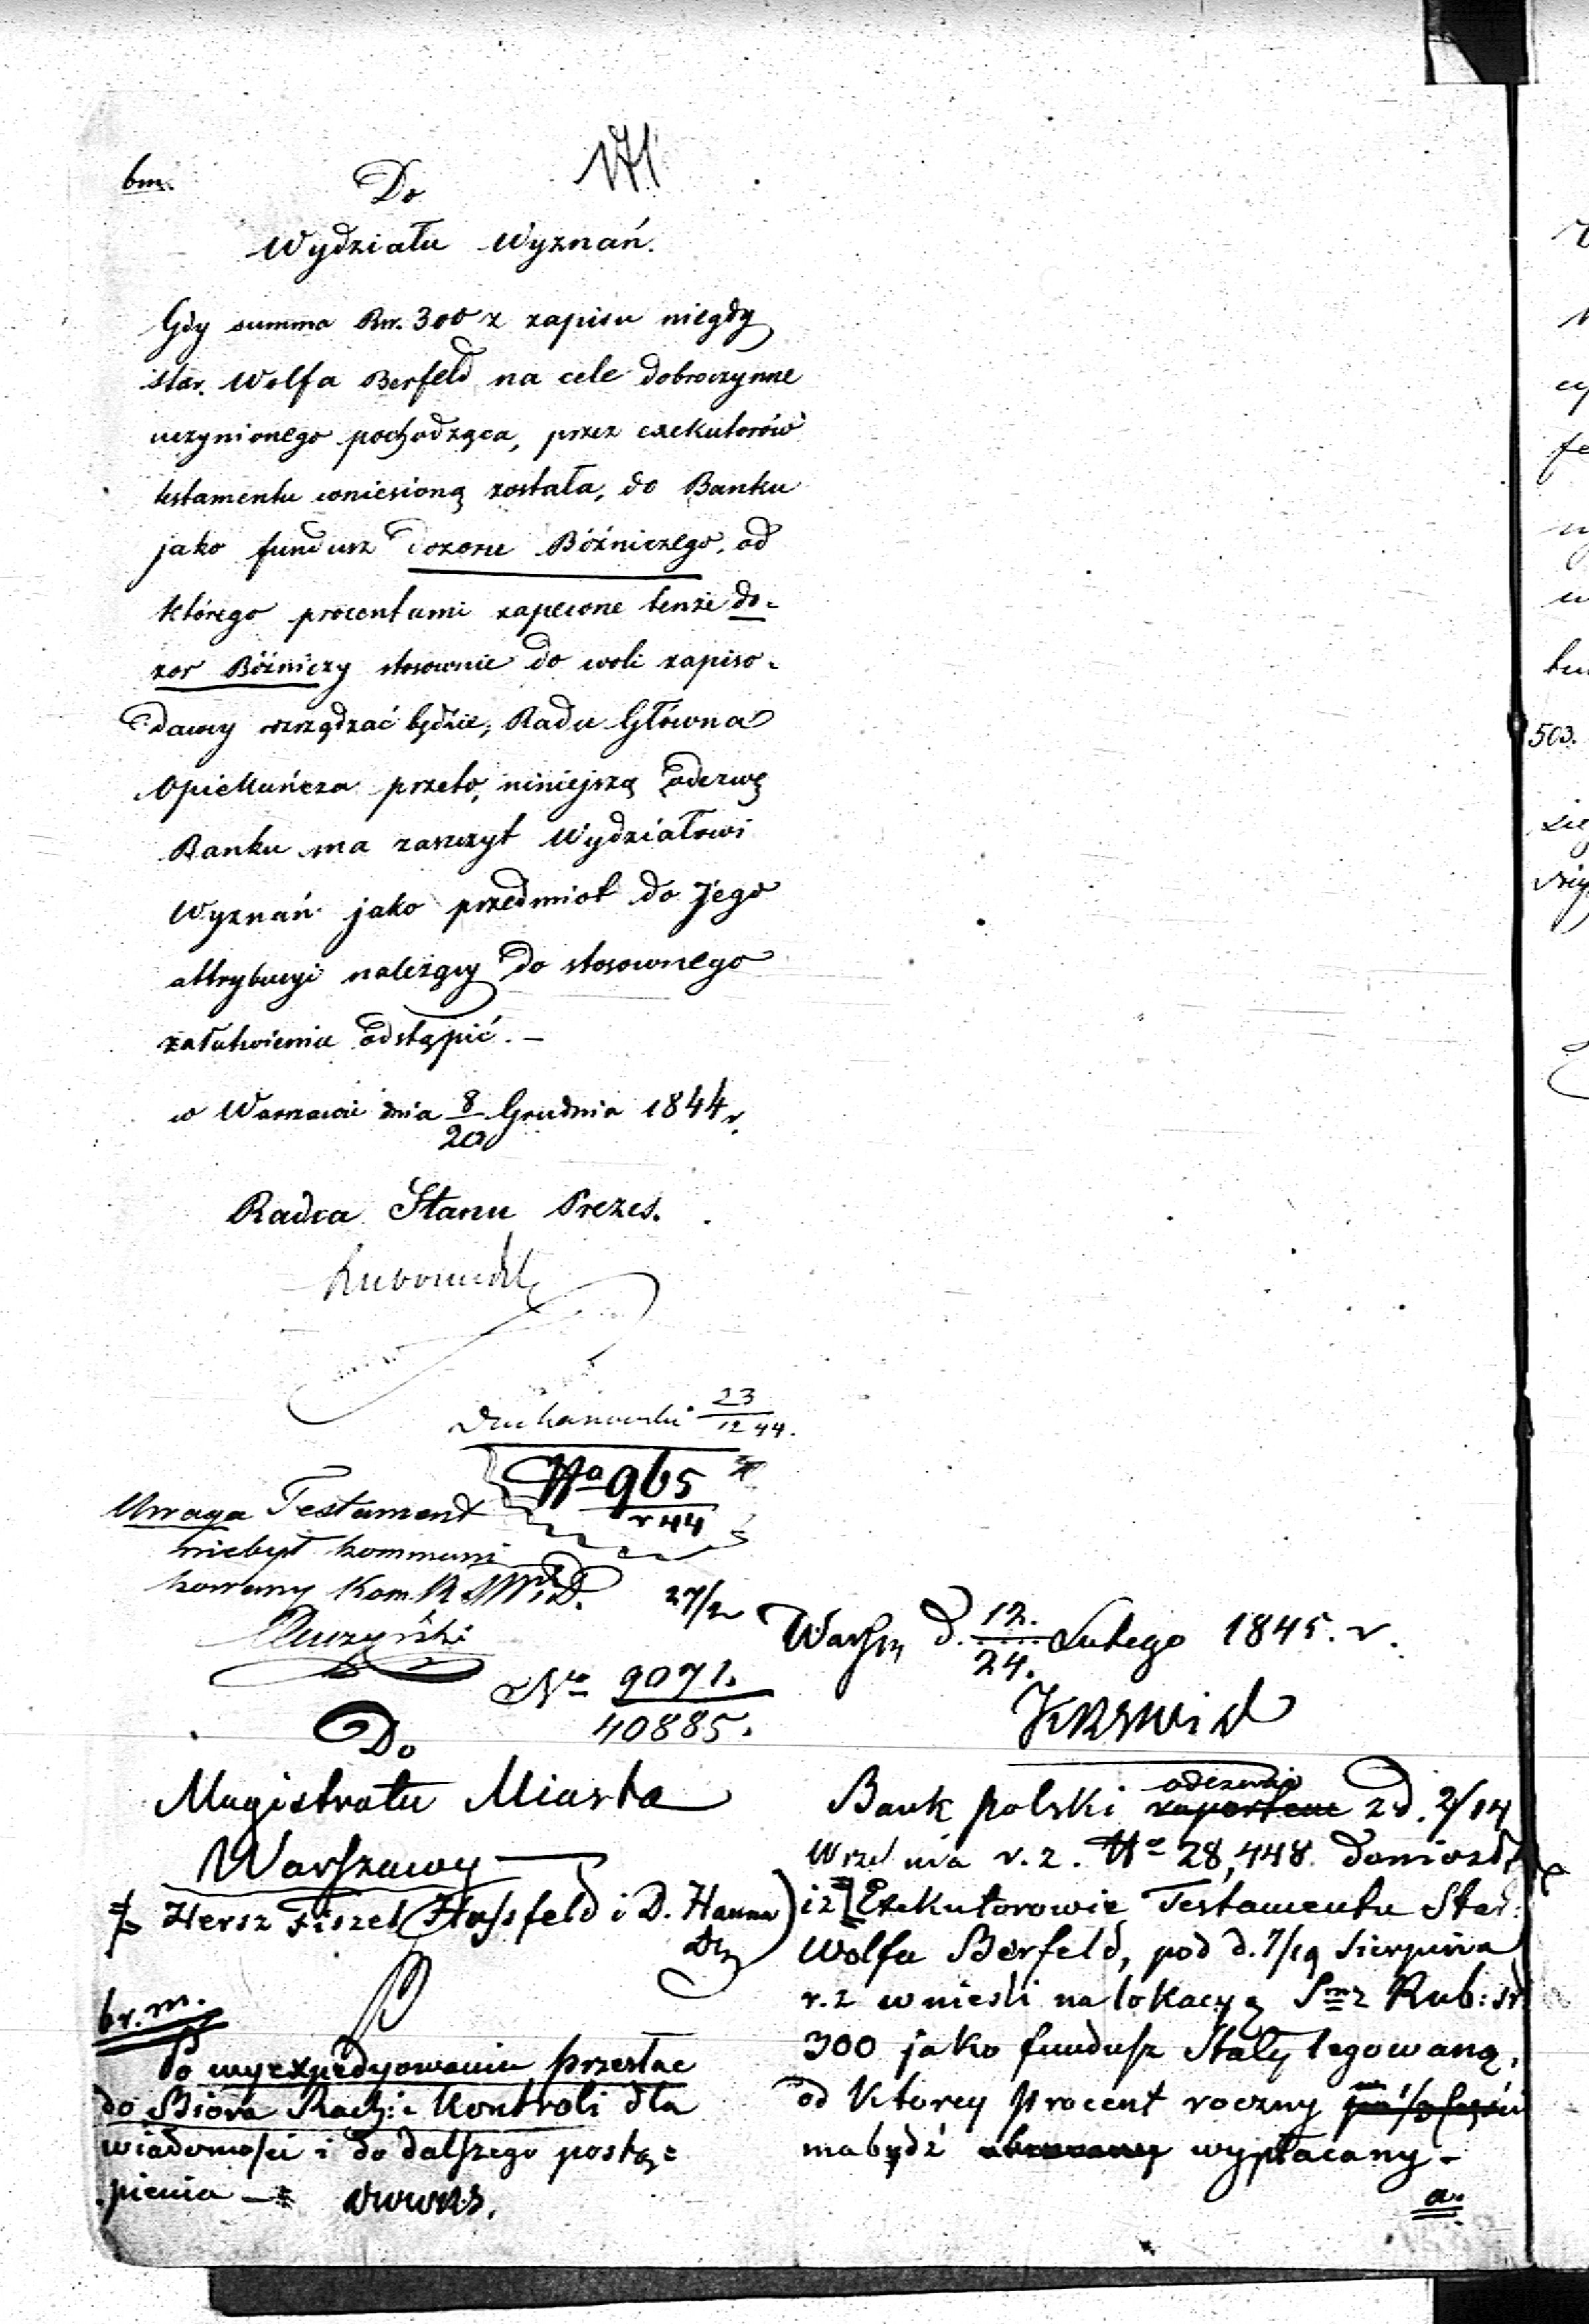 bm.
171
Do
Wydziału Wyznań.
Gdy summa Rsr. 300 z zapisu niegdy
star. Wolfa Berfeld na cele dobroczynne
uczynionego pochodząca, przez exekutorów
testamentu wniesioną została, do Banku
jako fundusz dozoru Bóźniczego, od
którego procentami zapewne tenże do-
zor Bóźniczy stosownie do woli zapiso-
dawcy rozrządzać będzie, Rada Główna
Opiekuńcza przeto, niniejszą odezwę
Banku ma zaszczyt Wydziałowi
Wyznań jako przedmiot do Jego
attrybucyi należący do stosownego
załatwienia odstąpić. —
w Warszawie dnia 8/20 Grudnia 1844 r.
Radca Stanu Prezes.
23/12 44.
No 965
r 44
Uwaga Testament
niebył kommuni
kowany Kom. R
27/2
No 9071.
40885.
Do
Magistratu Miasta
Warszawy —
Hersz Fiszel Hassfeld i D. Hanna
br. m.
Po wyexpedyowaniu przesłać
do Bióra Rach: i Kontroli dla
wiadomości i do dalszego postą=
pienia —
Warsza d. 12./24. Lutego 1845. r.
Bank polski odezwą raportem z d. 2/14
Września r. z. No 28,448 doniosł
iż Exekutorowie Testamentu Star:
Wolfa Berfeld, pod d. 7/19 Sierpnia
r. z wnieśli na lokacyą Smę Rub: sr
300 jako fundusz Stały legowaną,
od Ktorey procent roczny
ma bydź wypłacany -
a.
503.